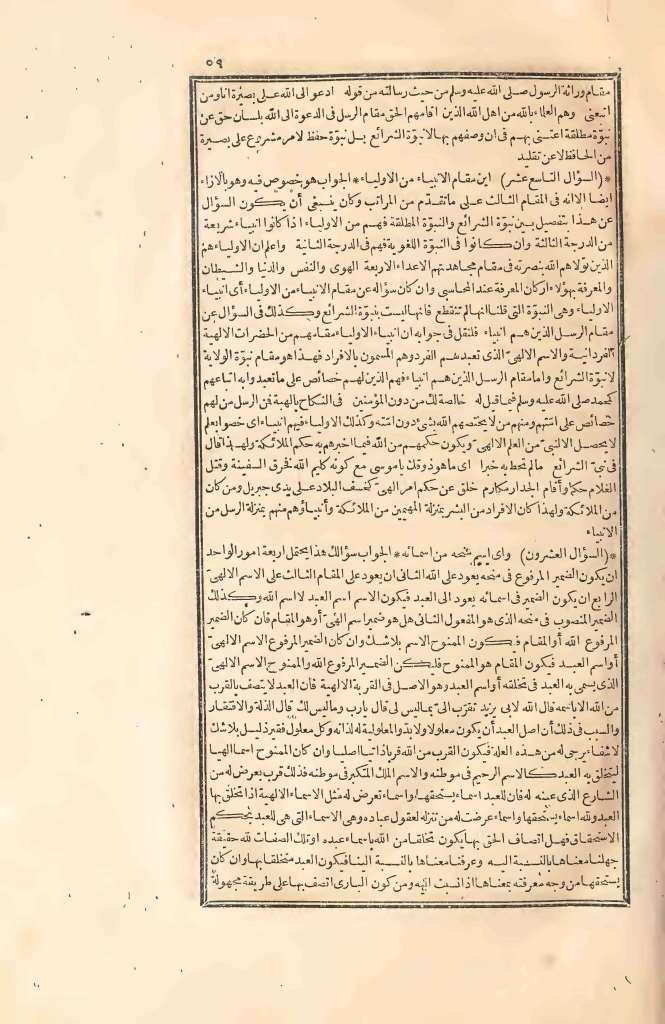 ٥٩
مقام وراثة الرسول صلى الله عليه وسلم من حيث رسالته من قوله ادعو الى الله على بصيرة انا ومن
اتبعنى وهم العلماء بالله من اهل الله الذين اقامهم الحق مقام الرسل فى الدعوة الى الله بلسان حق عن
نبوّة مطلقة اعتنى بهم فى ان وصفهم بها لا نبوّة الشرائع بل نبوّة حفظ لامر مشروع على بصيرة
من الحافظ لا عن تقليد
*(السؤال التاسع عشر) اين مقام الانبياء من الاولياء * الجواب هو خصوص فيه وهو بالازاء
ايضا الا انه فى المقام الثالث على ما تقدّم من المراتب وكان ينبغى أن يكون السؤال
عن هذا بتفصيل بين نبوّة الشرائع والنبوّة المطلقة فهم من الاولياء اذا كانوا انبياء شريعة
من الدرجة الثالثة وان كانوا فى النبوّة اللغوية فهم فى الدرجة الثانية واعلم ان الاولياء هم
الذين تولاهم الله بنصرته فى مقام مجاهدتهم الاعداء الاربعة الهوى والنفس والدنيا والشيطان
والمعرفة بهؤلاء اركان المعرفة عند المحاسبى وان كان سؤاله عن مقام الانبياء من الاولياء أى انبياء
الاولياء وهى النبوّة التى قلنا انها لم تنقطع فانها ليست بنبوّة الشرائع وكذلك فى السؤال عن
مقام الرسل الذين هم انبياء فلنقل فى جوابه ان انبياء الاولياء مقامهم من الحضرات الالهية
الفردانية والاسم الالهىّ الذى تعبدهم الفرد وهم المسمون بالافراد فهذا هو مقام نبوّة الولاية
لا نبوّة الشرائع واما مقام الرسل الذين هم انبياء فهم الذين لهم خصائص على ما تعبدوا به اتباعهم
كمحمد صلى الله عليه وسلم فيما قيل له خالصة لك من دون المؤمنين فى النكاح بالهبة فمن الرسل من لهم
خصائص على امّتهم ومنهم من لا يختصهم الله بشئ دون امّته وكذلك الاولياء فيهم انبياء اى خصوا بعلم
لا يحصل الا لنبىّ من العلم الالهىّ ويكون حكمهم من الله فيما اخبرهم به حكم الملائكة ولهذا قال
فى نبىّ الشرائع مالم تحط به خبرا اى ما هو ذوقك يا موسى مع كونه كليم الله فخرق السفينة وقتل
الغلام حكما وأقام الجدار مكارم خلق عن حكم امر الهىّ كخسف البلاد على يدى جبريل ومن كان
من الملائكة ولهذا كان الافراد من البشر بمنزلة المهيمين من الملائكة وأنبياؤهم منهم بمنزلة الرسل من
الانبياء
*(السؤال العشرون) واى اسم منحه من اسمائه * الجواب سؤالك هذا يحتمل اربعة امور الواحد
ان يكون الضمير المرفوع فى منحه يعود على الله الثانى ان يعود على المقام الثالث على الاسم الالهىّ
الرابع ان يكون الضمير فى اسمائه يعود الى العبد فيكون الاسم اسم العبد لا اسم الله وكذلك
الضمير المنصوب فى منحه الذى هو المفعول الثانى هل هو ضمير اسم الهىّ أو هو المقام فان كان الضمير
المرفوع الله أو المقام فيكون الممنوح الاسم بلا شك وان كان الضمير المرفوع الاسم الالهىّ
أو اسم العبد فيكون المقام هو الممنوح فليكن الضمير المرفوع الله والممنوح الاسم الالهىّ
الذى يسمى به العبد فى تخلقه أو اسم العبد وهو الاصل فى القربة الالهية فان العبد لا يتصف بالقرب
من الله الا باسمه قال الله لابى يزيد تقرّب الىّ بما ليس لى قال يا رب وما ليس لك قال الذلة والافتقار
والسبب فى ذلك أن اصل العبد أن يكون معلولا ولا بدّ والمعلولية له لذاته وكل معلول فقير ذليل بلا شك
لا شفاء يرجى له من هذه العلة فيكون القرب من الله قربا ذاتيا اصليا وان كان الممنوح اسما الهيا
ليتخلق به العبد كالاسم الرحيم فى موطنه والاسم الملك المتكبر فى موطنه فذلك قرب يعرض له من
الشارع الذى عينه له فان للعبد اسماء يستحقها واسماء تعرض له مثل الاسماء الالهية اذا تخلق بها
العبد ولله اسماء يستحقها واسماء عرضت له من تنزله لعقول عباده وهى الاسماء التى هى للعبد بحكم
الاستحقاق فهل اتصاف الحق بها يكون تخلقا من الله باسماء عبده او تلك الصفات لله حقيقة
جهلنا معناها بالنسبة اليه وعرفنا معناها بالنسبة الينا فيكون العبد متخلقا بها وان كان
يستحقها من وجه معرفته بمعناها اذا نسبت اليه ومن كون البارى اتصف بها على طريقة مجهولة